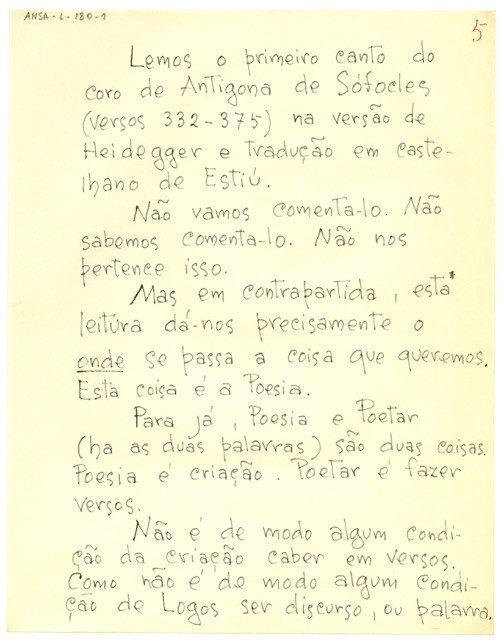 ANSA-L-180-1
5
Lemos o primeiro canto do
coro de Antigona de Sófocles
(versos 332-375) na versão de
Heidegger e tradução em caste-
lhano de Estiú.
Não vamos comenta-lo. Não
sabemos comenta-lo. Não nos
pertence isso.
Mas em contrapartida, esta
leitura dá-nos precisamente o
onde se passa a coisa que queremos.
Esta coisa é a Poesia.
Para já, Poesia e Poetar
(ha as duas palavras) são duas coisas.
Poesia é criação. Poetar é fazer
versos.
Não é de modo algum condi-
ção da criação caber em versos.
Como não é de modo algum condi-
ção de Logos ser discurso, ou palavra.